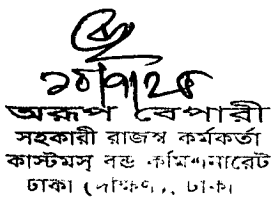 অরূপ বেপারী
সহকারী রাজস্ব কর্মকর্তা
কাস্টমস্ বন্ড কমিশনারেট
ঢাকা (দক্ষিণ), ঢাকা